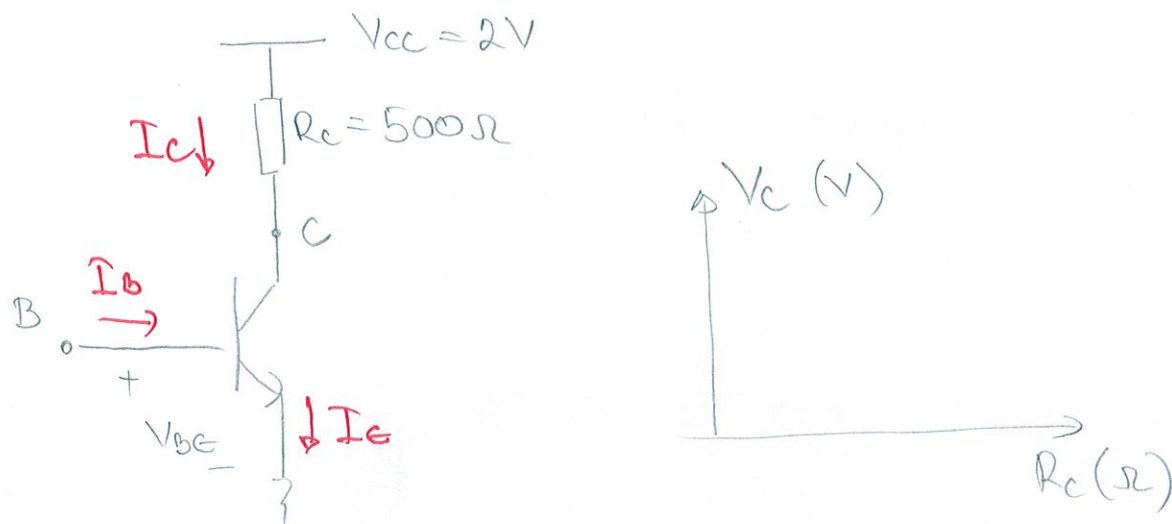 VCC = 2V
IC
RC = 500Ω
C
IB
B
+
VBE
−
IE
VC (V)
RC (Ω)